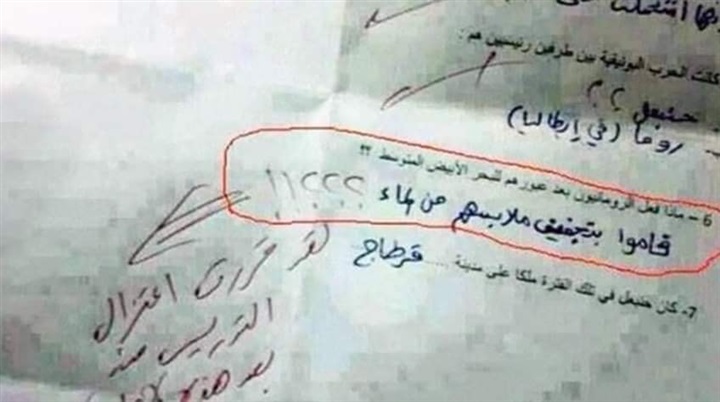 كانت الحرب البونيقية بين طرفين رئيسيين هم :
حنبعل ؟؟
روما (في إيطاليا)
6 – ماذا فعل الرومانيون بعد عبورهم للبحر الأبيض المتوسط ؟؟
قاموا بتجفيف ملابسهم من الماء ؟؟؟؟!!
7- كان حنبعل في تلك الفترة ملكا على مدينة ..... قرطاج
لقد قررت اعتزال
التدريس منذ
بعد هذه